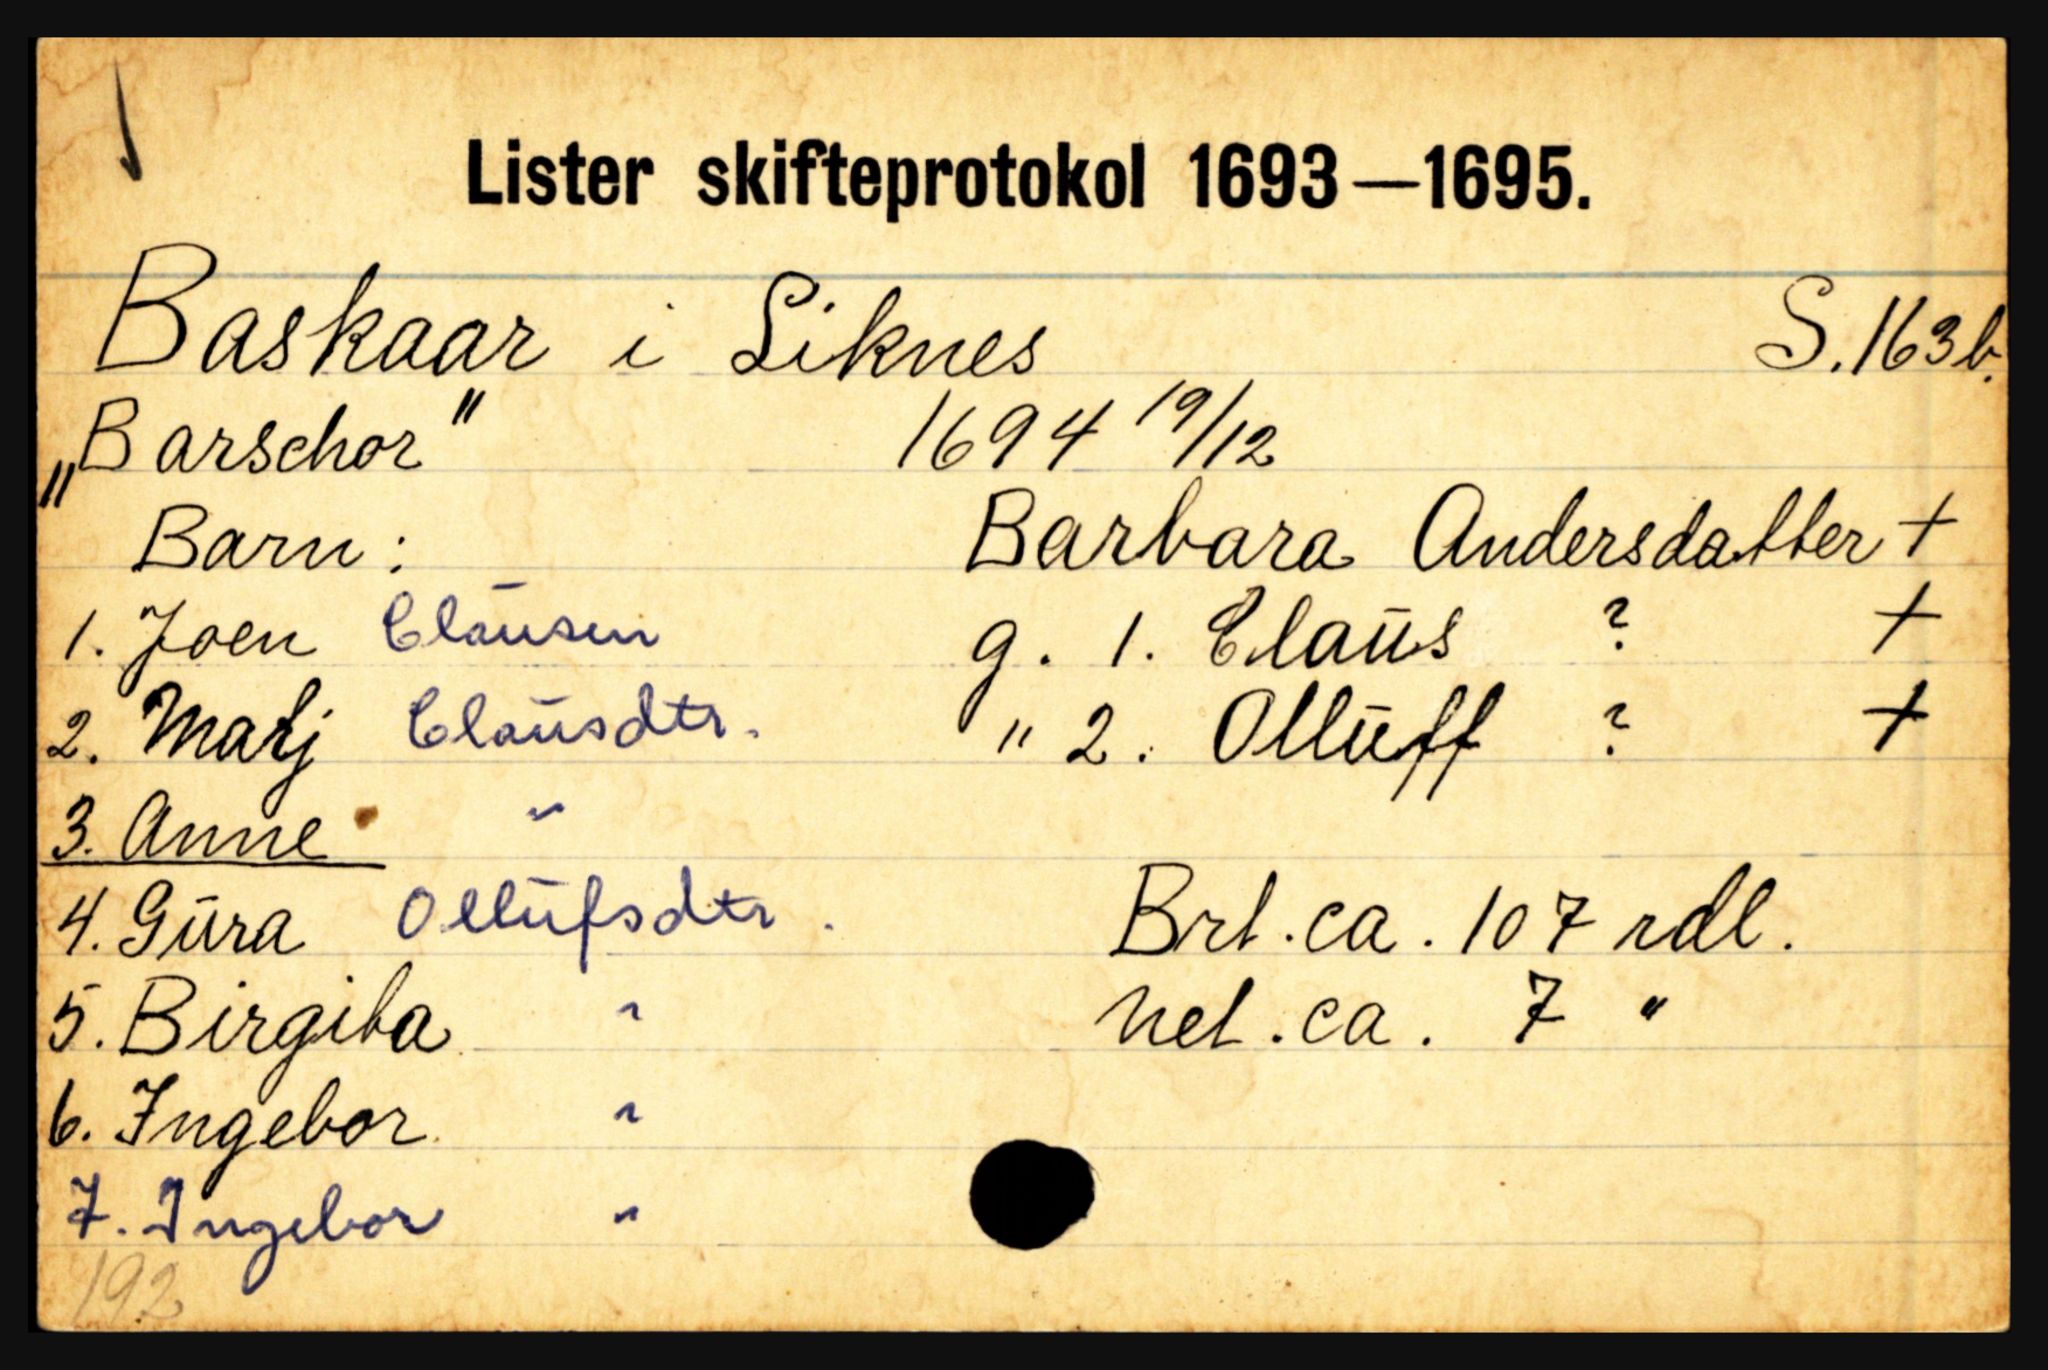 Lister skifteprotokol 1693—1695.
Baskaar i Liknes S. 163b.
„Barschor" 1694 19/12
Barn: Barbara Andersdatter +
1. Joen Claŭsen g. 1. Claŭs ? +
2. Marj Claŭsdtr. " 2. Ollŭff ? +
3. Anne "
4. Gŭra Ollŭfsdtr. Brt. ca. 107 rdl.
5. Birgita " Net. ca. 7 "
6. Ingebor "
7. Ingebor "
192